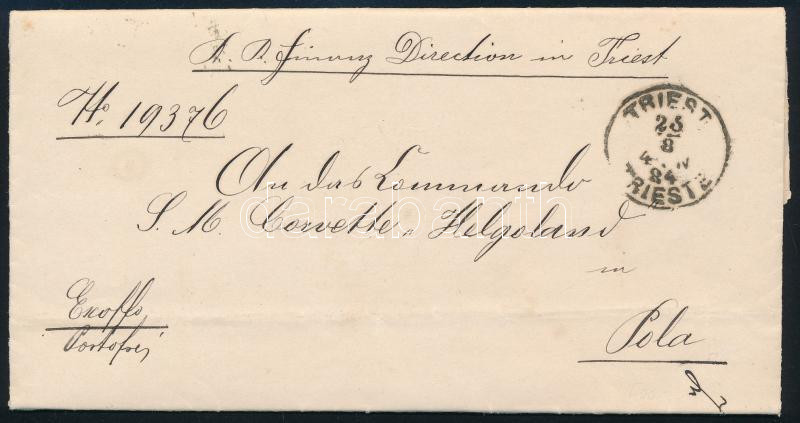 K. K. Finanz Direction in Triest
No. 19376
TRIEST
25
8
84
TRIESTE
An das Commando
S. M. Corvette „Helgoland
in
Pola
Exoffo
Portofrei
darabanth